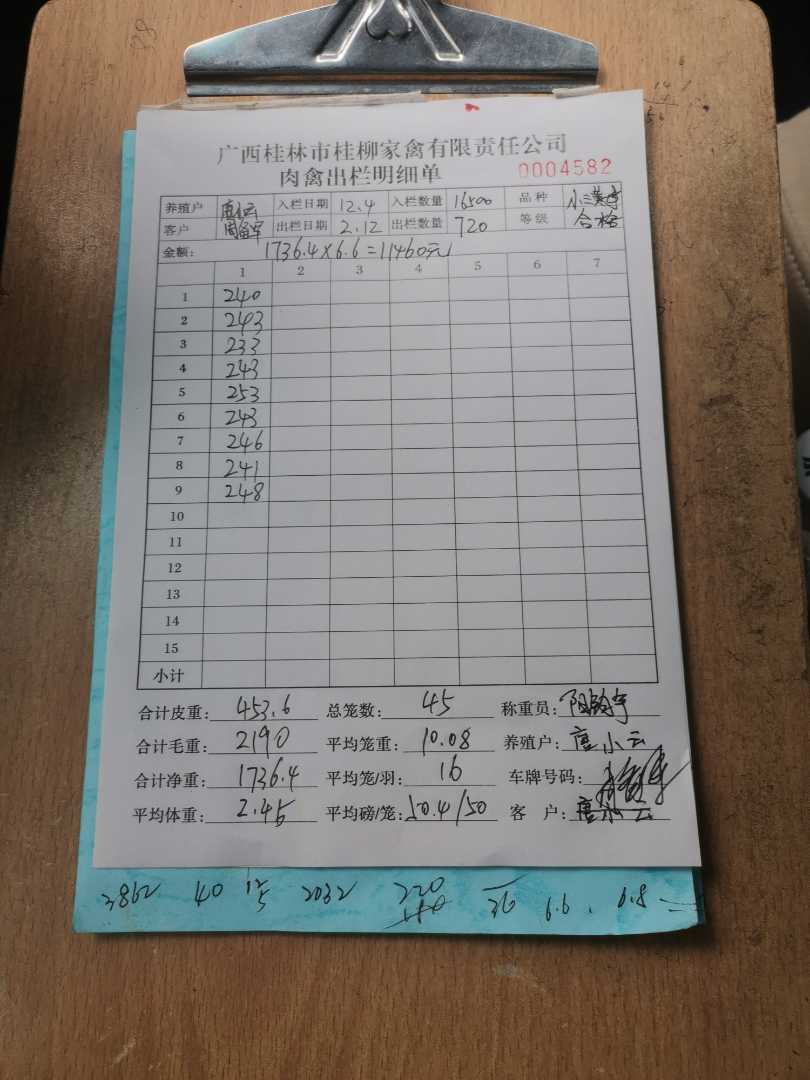 广西桂林市桂柳家禽有限责任公司
肉禽出栏明细单 0004582
养殖户 唐小云 入栏日期 12.4 入栏数量 16500 品种 小三黄
客户 出栏日期 2.12 出栏数量 720 等级 合格
金额: 1736.4×6.6=11460元
1 2 3 4 5 6 7
1 240
2 243
3 233
4 243
5 253
6 243
7 246
8 241
9 248
10
11
12
13
14
15
小计
合计皮重: 453.6 总笼数: 45 称重员:
合计毛重: 2190 平均笼重: 10.08 养殖户: 唐小云
合计净重: 1736.4 平均笼/羽: 16 车牌号码:
平均体重: 2.45 平均磅/笼: 50.4/50 客 户: 唐小云
3862 40 2032 220 36 6.6. 6.8